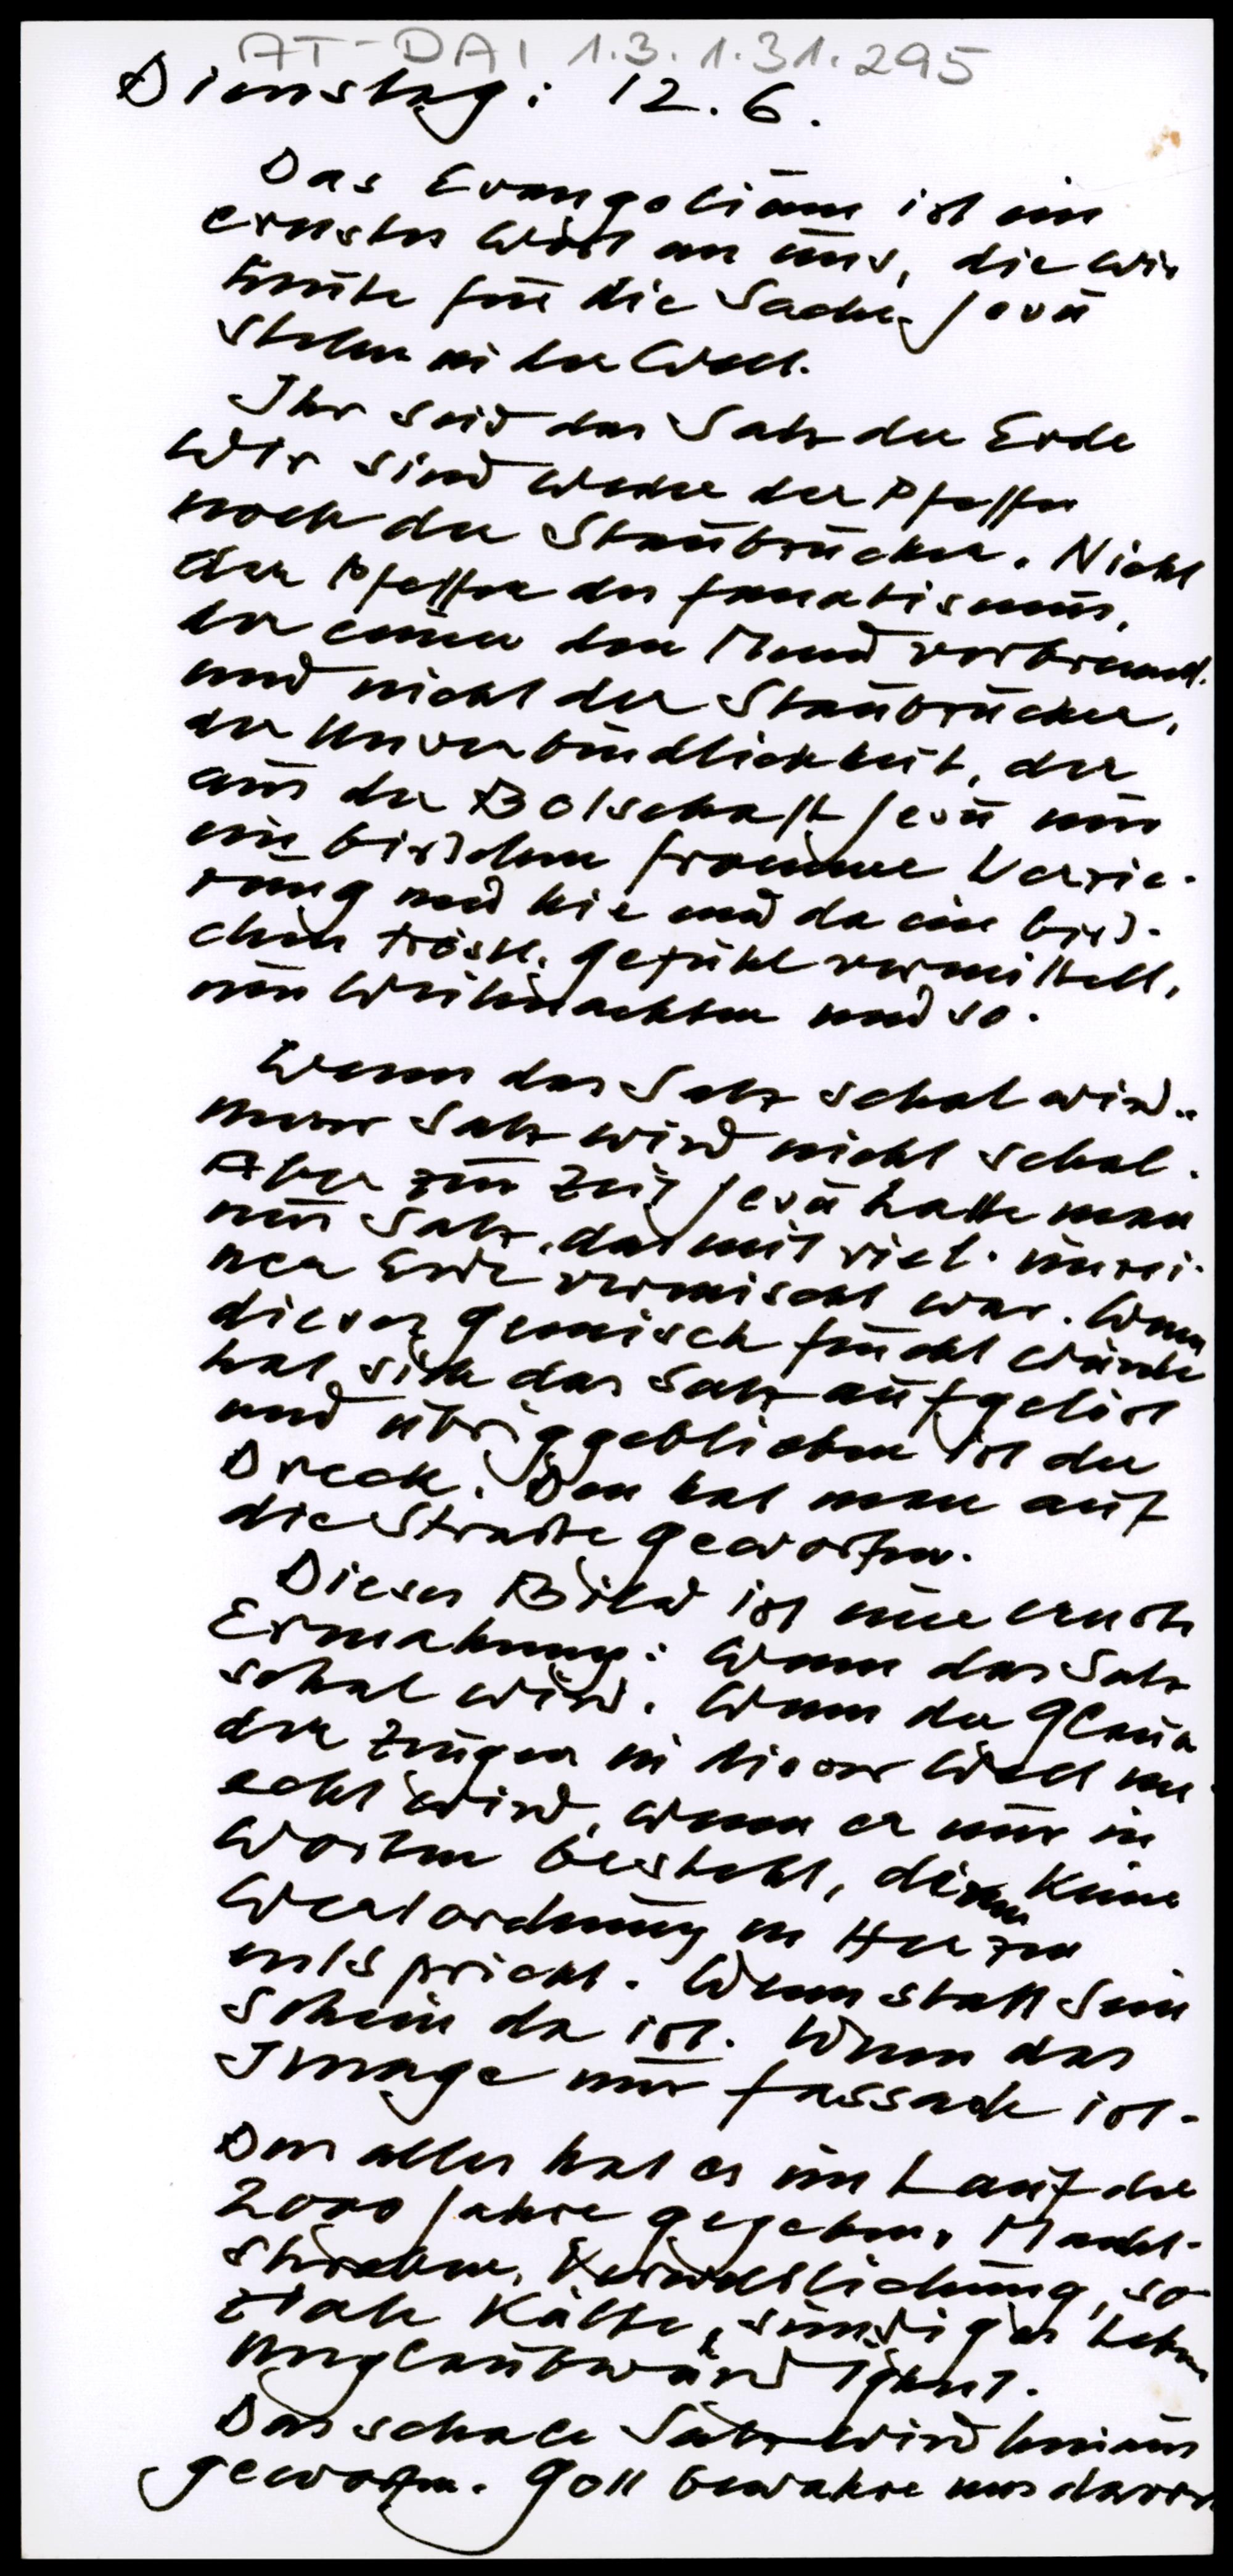 AT-DAI 1.3.1.31.295
Dienstag: 12.6.
Das Evangelium ist ein
ernstes Wort an uns, die wir
heute für die Sache Jesu
stehen in der Welt.
Ihr seid das Salz der Erde
Wir sind weder der Pfeffer
noch der Staubzucker. Nicht
der Pfeffer des Fanatismus,
der einem den Mund verbrennt.
und nicht der Staubzucker,
der Unverbindlichkeit, der
aus der Botschaft Jesu nur
ein bisschen fromme Verzie-
rung und hie und da ein biss-
chen tröstl. Gefühl vermittelt,
nur Weihnachten und so.
Wenn das Salz schal wird..
unser Salz wird nicht schal.
Aber zur Zeit Jesu hatte man
nur Salz, das mit viel unrei-
ner Erde vermischt war. Wenn
dieses Gemisch feucht wurde
hat sich das Salz aufgelöst
und übriggeblieben ist der
Dreck. Den hat man auf
die Straße geworfen.
Dieses Bild ist eine ernste
Ermahnung: Wenn das Salz
schal wird. Wenn der Glaube
der Zeugen in dieser Welt un-
echt wird, wenn er nur in
Worten besteht, denen keine
Wertordnung im Herzen
entspricht. Wenn statt Sein
Schein da ist. Wenn das
Image nur Fassade ist.
Das alles hat es im Lauf der
2000 Jahre gegeben, Macht-
streben, Verweltlichung, so-
ziale Kälte, sündiges Leben
Unglaubwürdigkeit.
Das schale Salz wird hinaus
geworfen. Gott bewahre uns davor